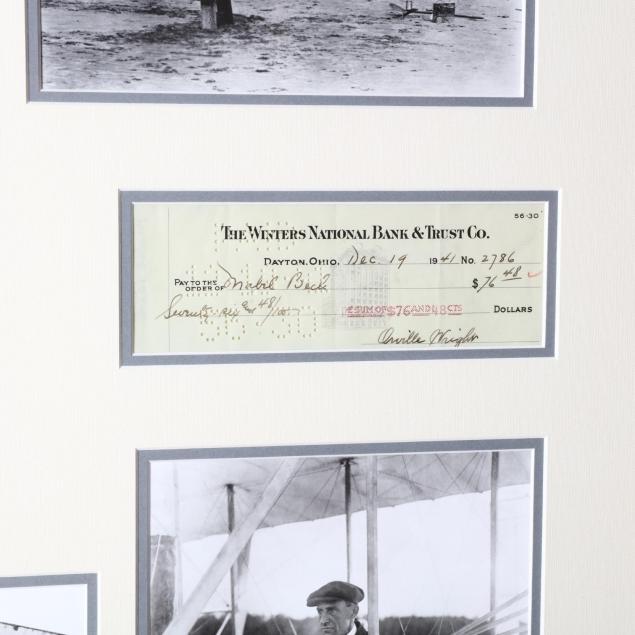 56-30
THE WINTERS NATIONAL BANK & TRUST CO.
DAYTON, OHIO, Dec. 19 1941 No. 2786
PAY TO THE ORDER OF Mabel Beck $76 48
Seventy-six and 48/100 THE SUM OF $76 AND 48 CTS DOLLARS
Orville Wright